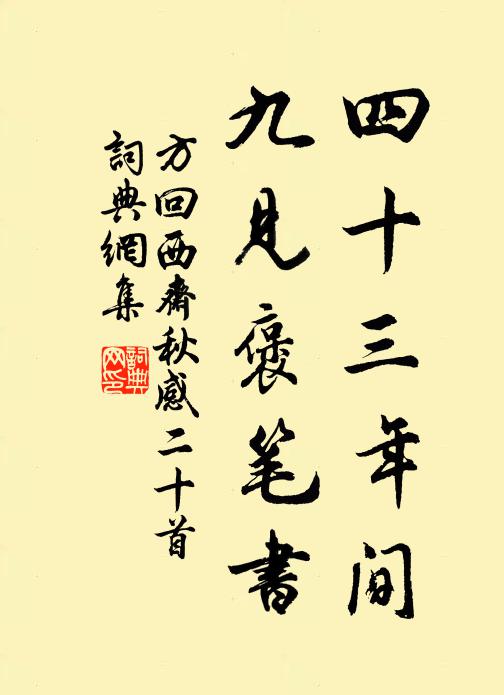 四十三年间
九見褒笔書
方回西齋秋感二十首
詞典網集
詞典网印